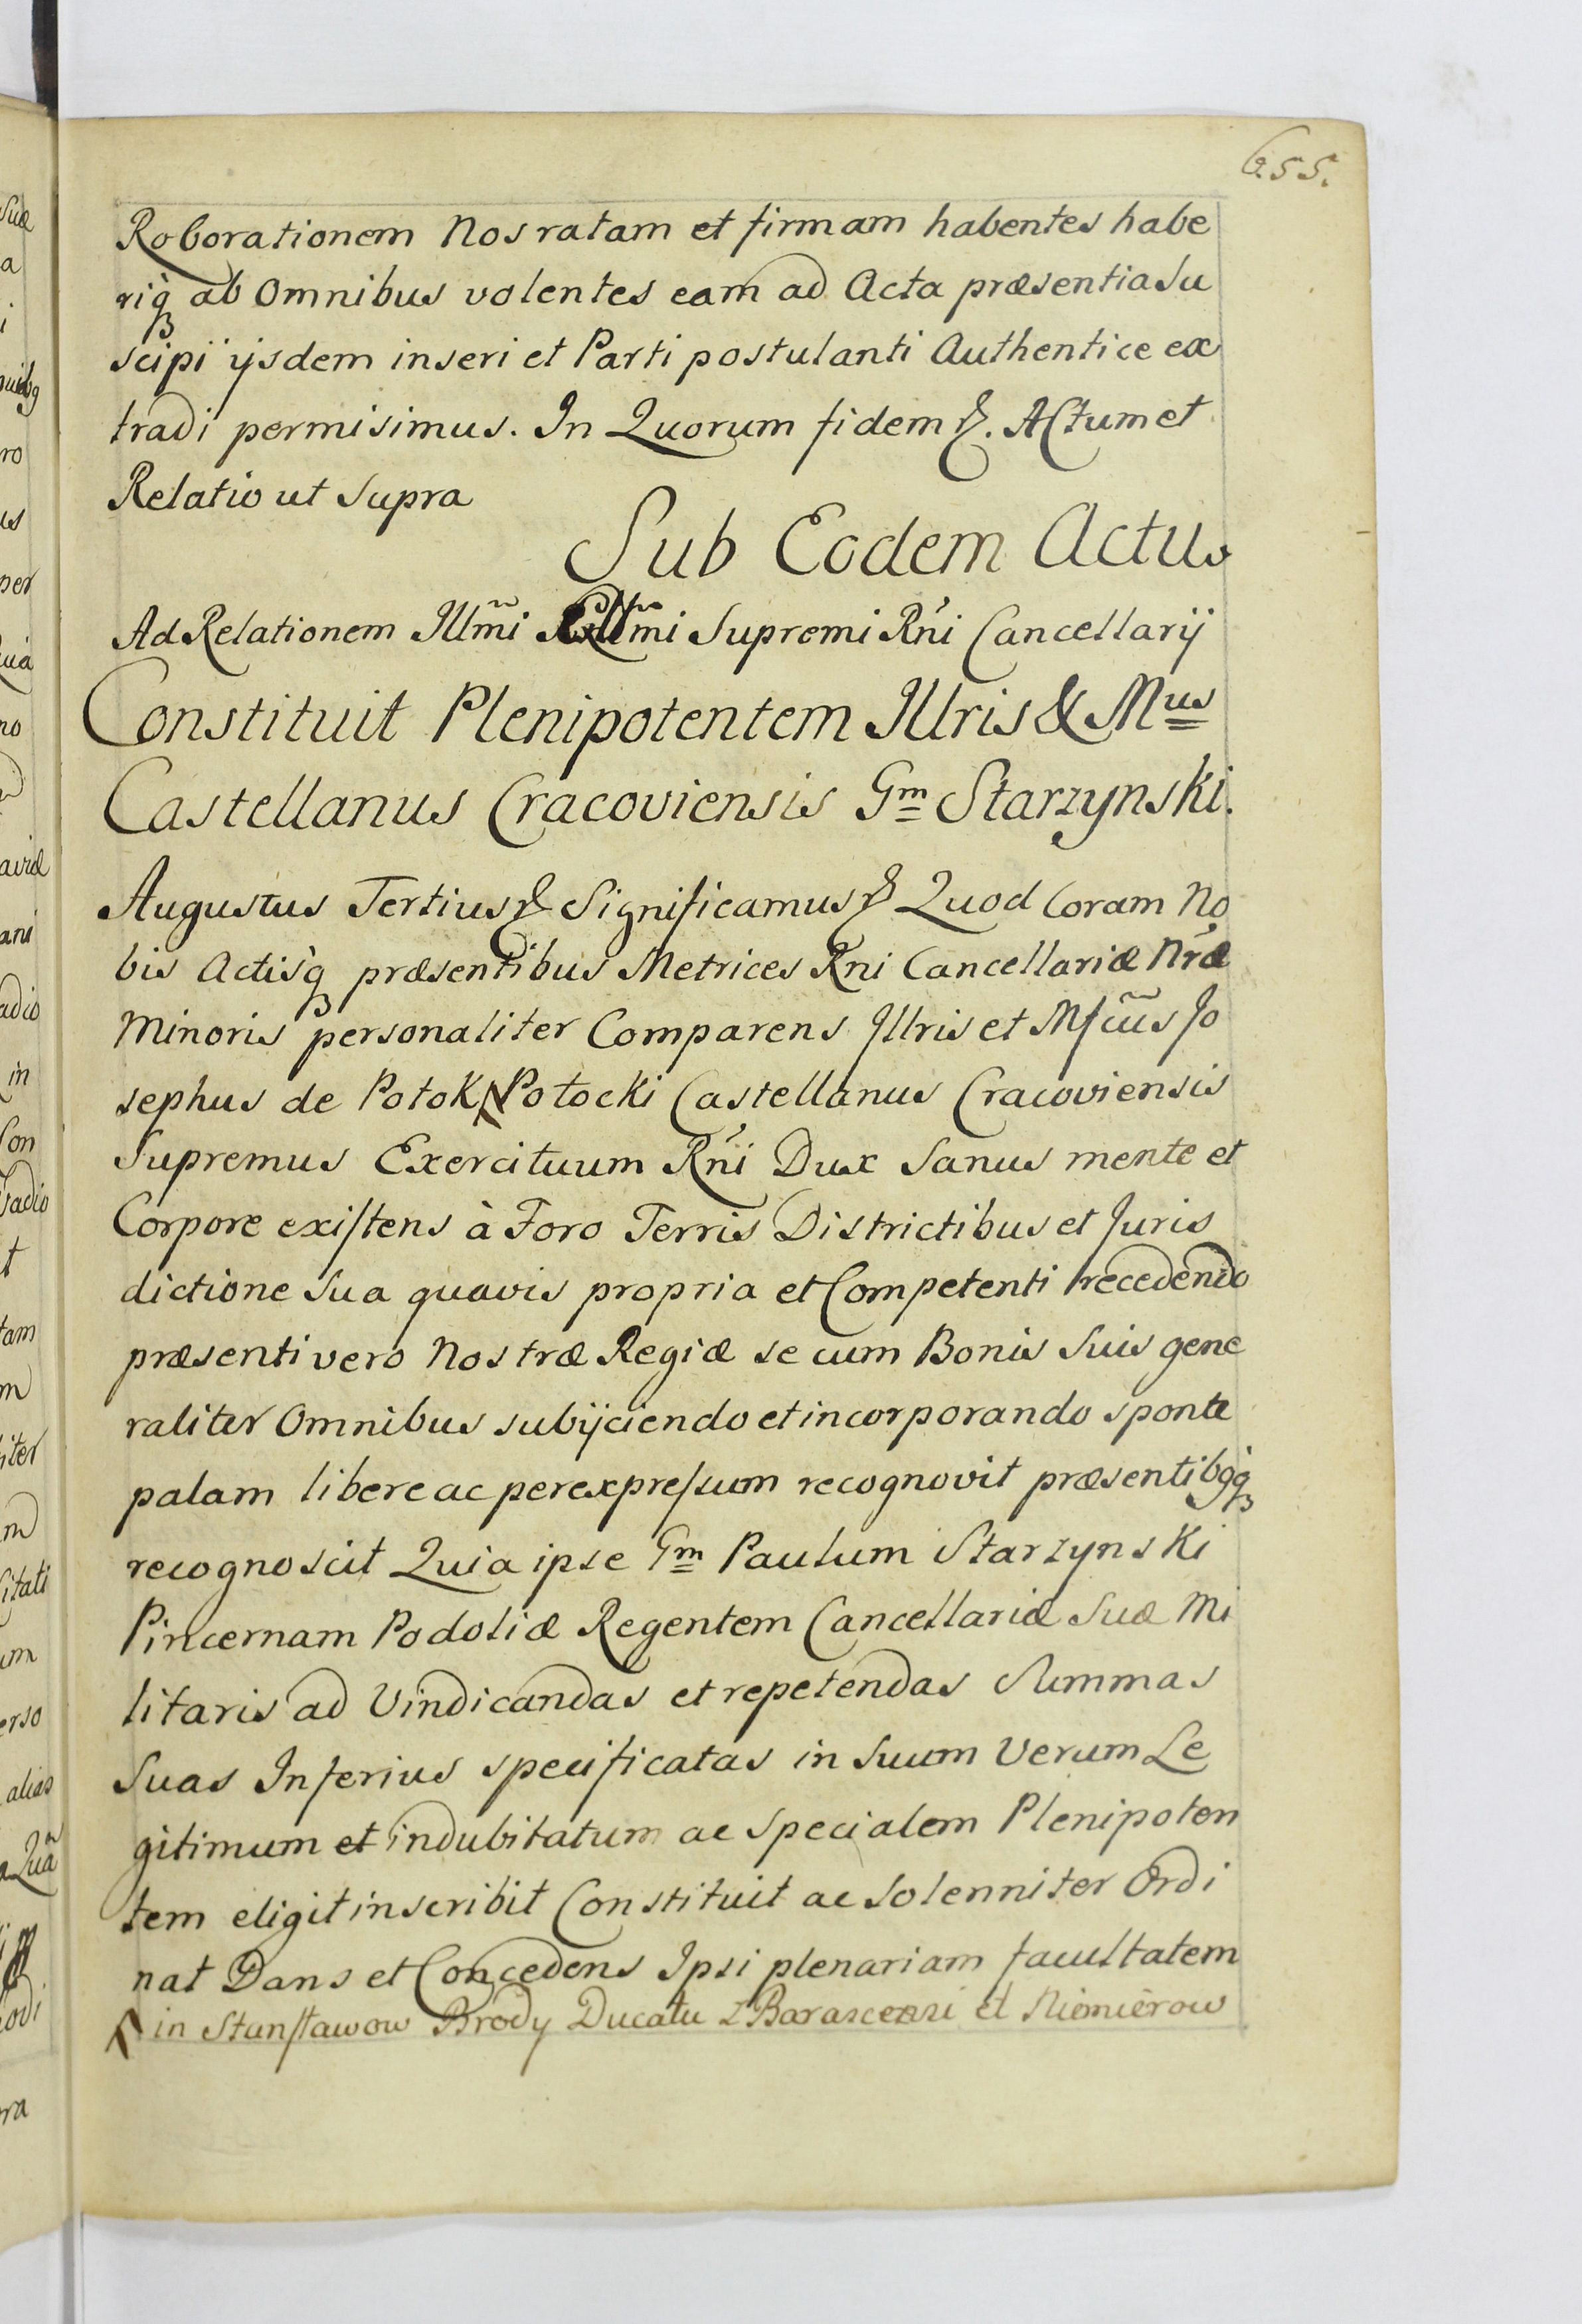 655.
Roborationem Nos ratam et firmam habentes habe
riq̀ꝫ ab Omnibus volentes eam ad Acta præsentia Su
scipi ijsdem inseri et Parti postulanti Authentice ex
tradi permisimus. In Quorum fidem &. Actum et
Relatio ut Supra
Sub Eodem Actu
Ad Relationem Illm̃i Excllm̃i Supremi Rńi Cancellarij
Constituit Plenipotentem Illris & Mus
Castellanus Cracoviensis Gm Starzynski.
Augustus Tertius & Significamus & Quod Coram No
bis Actisq̀ꝫ præsentibus Metrices Rni Cancellariæ Nŕæ
Minoris personaliter Comparens Illris et Mſcũs Jo
sephus de Potok Potocki Castellanus Cracoviensis
Supremus Exercituum Rńi Dux Sanus mente et
Corpore exiſtens à Foro Terris Districtibus et Juris
dictione Sua quavis propria et Competenti recedendo
præsenti vero Nostræ Regiæ se cum Bonis Suis gene
raliter Omnibus subijciendo et incorporando sponte
palam libere ac perexpreſsum recognovit præsentibq̀ꝫ
recognoscit Quia ipse Gm Paulum Starzynski
Pincernam Podoliæ Regentem Cancellariæ Suæ Mi
litaris ad Vindicandas et repetendas Summas
Suas Inferius specificatas in Suum Verum Le
gitimum et indubitatum ac Specialem Plenipoten
tem eligit inscribit Constituit ac Solenniter Ordi
nat Dans et Concedens Ipsi plenariam facultatem
in Stanſtawow Brody Ducatu Zbarascensi et Niemierow